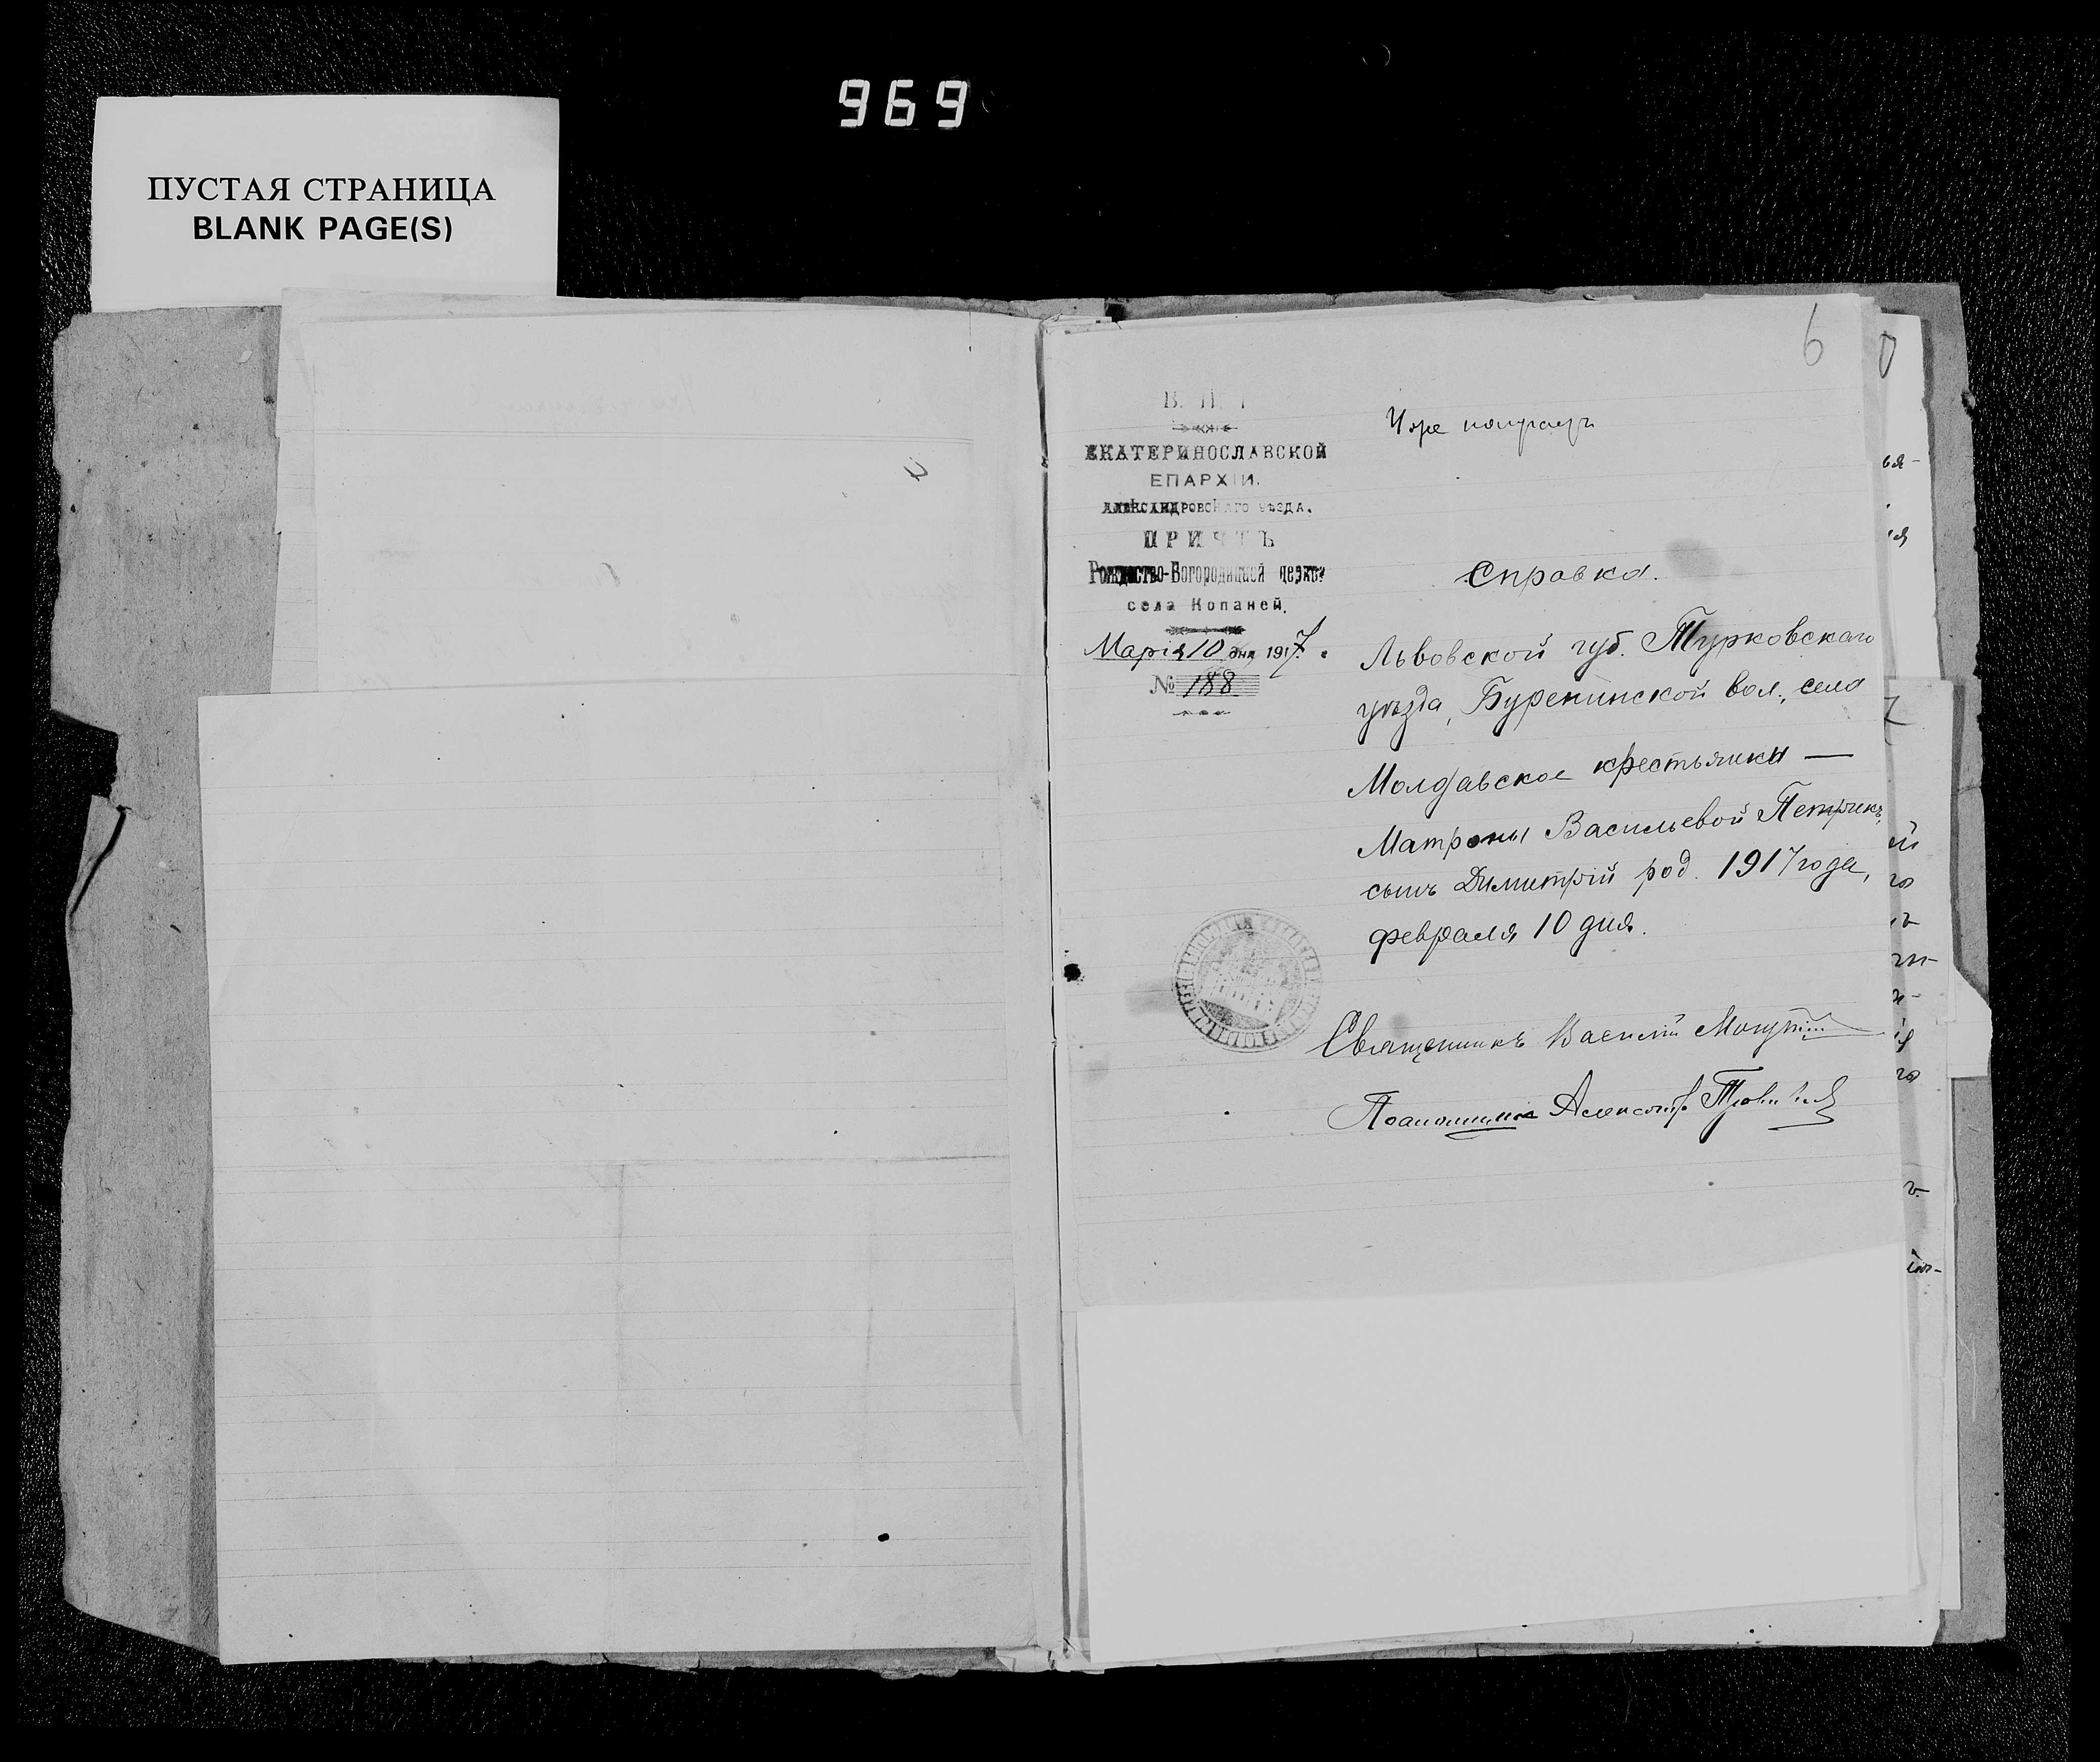 969
ПУСТАЯ СТРАНИЦА
BLANK PAGE(S)
6
В. П. І
ЕКАТЕРИНОСЛАВСКОЙ
ЕПАРХІИ.
АЛЕКСАНДРОВСКАГО УѢЗДА.
ПРИЧТЪ
Рождество-Богородицкой церкви
села Копаней.
Марта 10 дня 1917 г.
№ 188
Справка.
Львовской губ. Турковскаго
уѣзда, Буренинской вол., села
Молдавское крестьянки —
Матроны Васильевой Петрикъ,
сынъ Димитрій род. 1917 года,
февраля 10 дня.
Священникъ Василій
Псаломщикъ Александръ